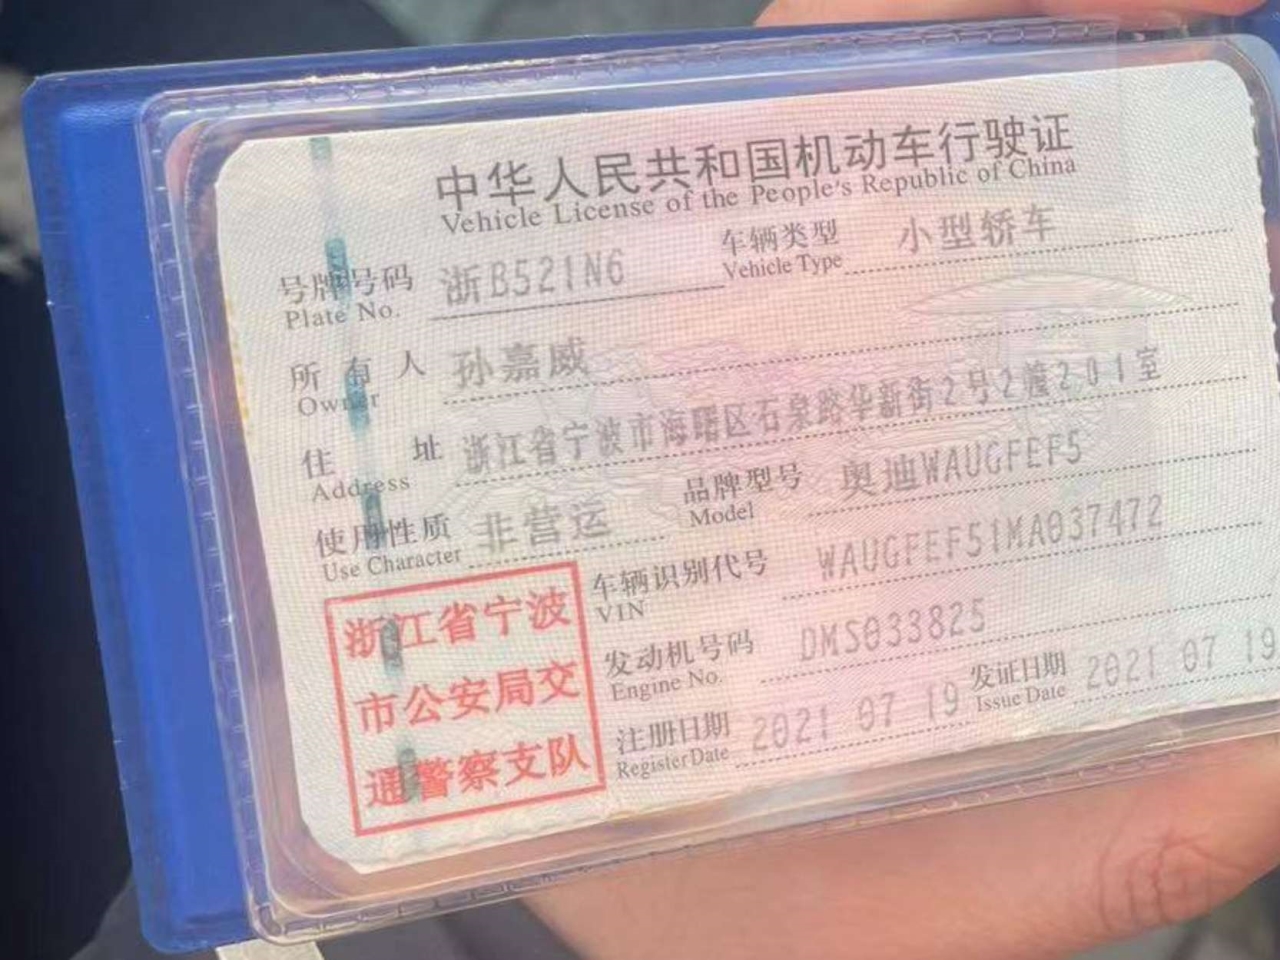 中华人民共和国机动车行驶证
Vehicle License of the People's Republic of China
号牌号码 浙B521N6 车辆类型 小型轿车
Plate No. Vehicle Type
所有人 孙嘉威
Owner
住址 浙江省宁波市海曙区石泉路华新街2号2幢201室
Address
使用性质 非营运 品牌型号 奥迪WAUGFEF5
Use Character Model
车辆识别代号 WAUGFEF51MA037472
VIN
发动机号码 DMS033825
Engine No.
注册日期 2021 07 19 发证日期 2021 07 19
Register Date Issue Date
浙江省宁波
市公安局交
通警察支队